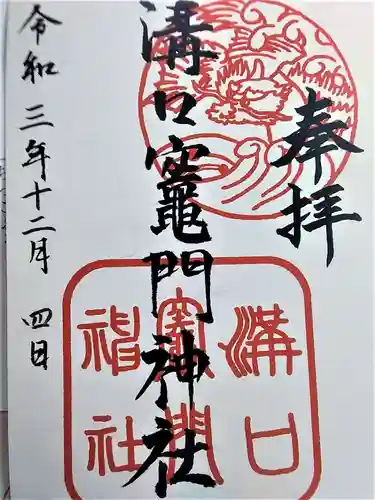 奉拝
溝口竈門神社
令和三年十二月四日
溝口
竈門
神社